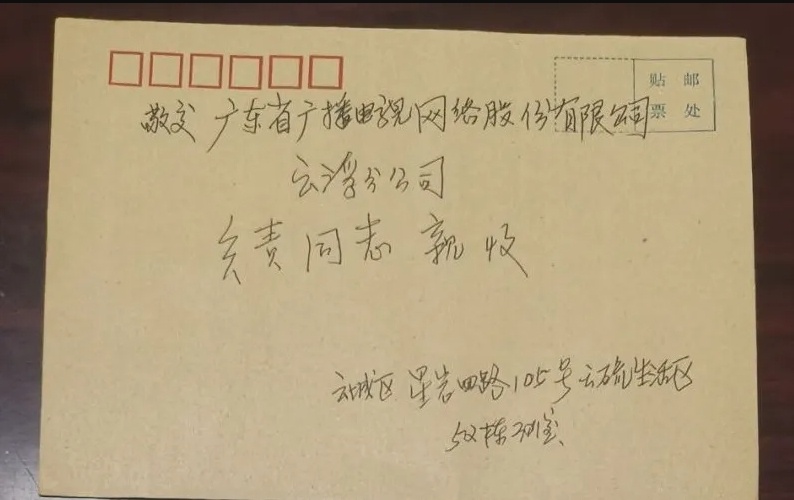 贴 邮
票 处
敬交 广东省广播电视网络股份有限公司
云浮分公司
负责同志 亲收
云城区 星岩四路105号云硫生活区